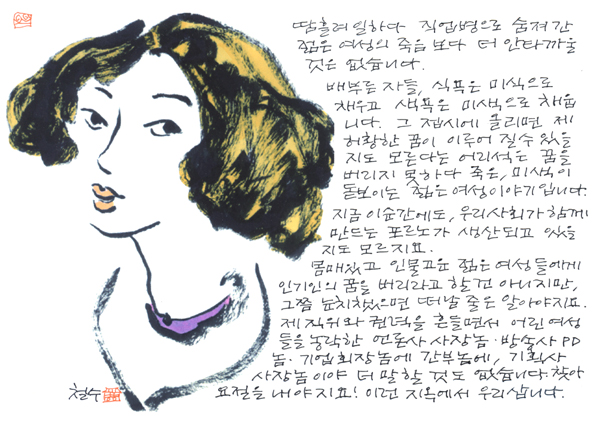 땀흘려 일하다 직업병으로 숨져간
젊은 여성의 죽음 보다 더 안타까울
것은 없습니다.
배부른 자들, 식욕은 미식으로
채우고 색욕은 미색으로 채웁
니다. 그 접시에 올리면 제
허황한 꿈이 이루어 질수 있을
지도 모른다는 어리석은 꿈을
버리지 못하다 죽은, 미색이
돋보이는 젊은 여성이야기 입니다.
지금 이순간에도, 우리사회가 함께
만드는 포르노가 생산되고 있을
지도 모르지요.
몸매있고 인물고운 젊은 여성들에게
인기인의 꿈을 버리라고 할건 아니지만,
그쯤 눈치챘으면 떠날 줄은 알아야지요.
제 직위와 권력을 흔들면서 어린여성
들을 농락한 언론사 사장놈·방송사 PD
놈·기업회장놈에 간부놈에, 기획사
사장놈이야 더 말할 것도 없습니다. 찾아
요절을 내야지요! 이런 지옥에서 우리삽니다.
철수